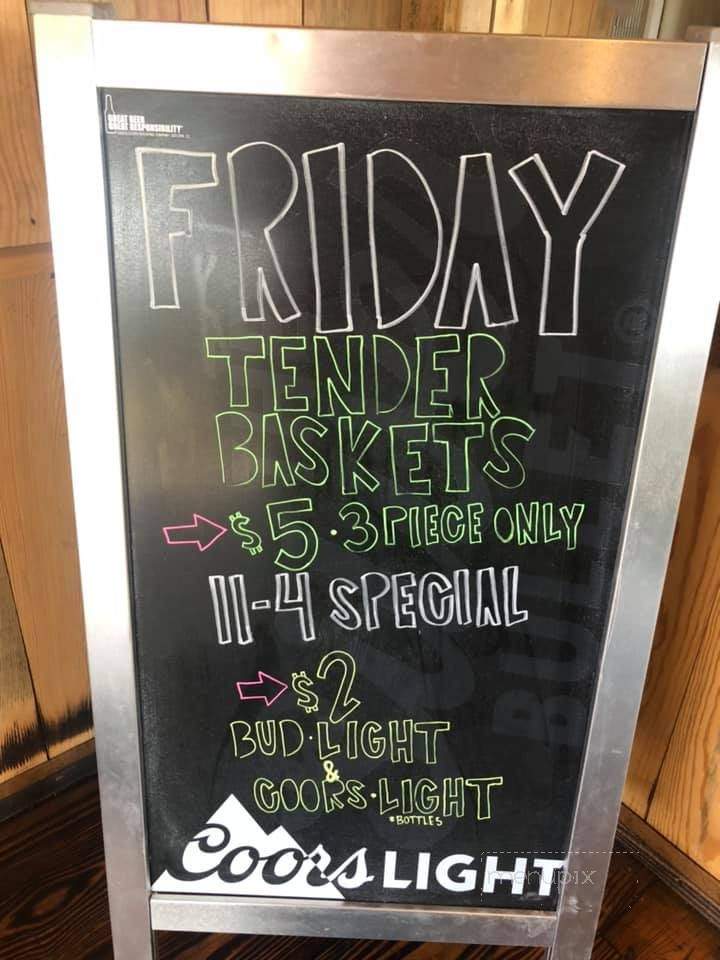 GREAT BEER
GREAT RESPONSIBILITY
FRIDAY
TENDER
BASKETS
$5 · 3 PIECE ONLY
11-4 SPECIAL
$2
BUD · LIGHT
&
COORS · LIGHT
*BOTTLES
Coors LIGHT
menupix
BULLET